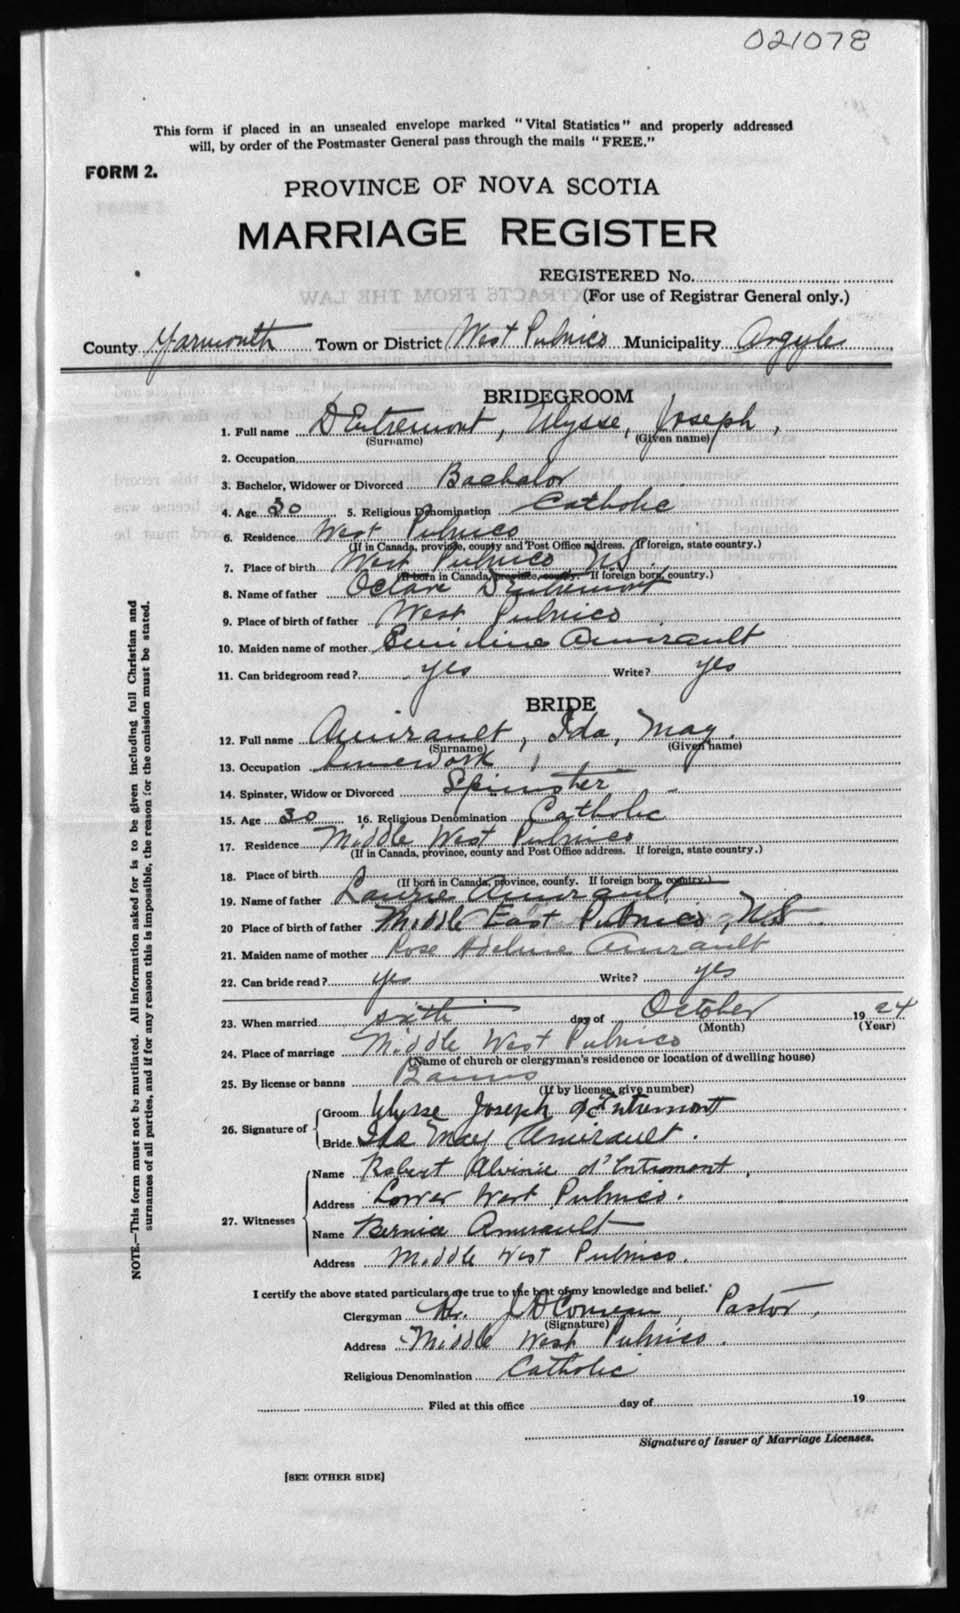 021078
This form if placed in an unsealed envelope marked "Vital Statistics" and properly addressed
will, by order of the Postmaster General pass through the mails "FREE."
FORM 2.
PROVINCE OF NOVA SCOTIA
MARRIAGE REGISTER
REGISTERED No.
(For use of Registrar General only.)
County Yarmouth Town or District West Pubnico Municipality Argyle
BRIDEGROOM
1. Full name D'Entremont, Ulysse, Joseph,
(Surname) (Given name)
2. Occupation
3. Bachelor, Widower or Divorced Bachelor
4. Age 30 5. Religious Denomination Catholic
6. Residence West Pubnico
(If in Canada, province, county and Post Office address. If foreign, state country.)
7. Place of birth West Pubnico N.S.
(If born in Canada, province, county. If foreign born, country.)
8. Name of father Octave D'Entremont
9. Place of birth of father West Pubnico
10. Maiden name of mother Amirault
11. Can bridegroom read? yes Write? yes
BRIDE
12. Full name Amirault, Ida, May.
(Surname) (Given name)
13. Occupation housework
14. Spinster, Widow or Divorced Spinster
15. Age 30 16. Religious Denomination Catholic
17. Residence Middle West Pubnico
(If in Canada, province, county and Post Office address. If foreign, state country.)
18. Place of birth
(If born in Canada, province, county. If foreign born, country.)
19. Name of father Amirault
20 Place of birth of father Middle East Pubnico, N.S.
21. Maiden name of mother Rose Adeline Amirault
22. Can bride read? yes Write? yes
23. When married sixth day of October 1924
(Month) (Year)
24. Place of marriage Middle West Pubnico
(Name of church or clergyman's residence or location of dwelling house)
25. By license or banns Banns
(If by license, give number)
26. Signature of Groom Ulysse Joseph d'Entremont
Bride Ida May Amirault.
27. Witnesses Name Robert d'Entremont,
Address Lower West Pubnico.
Name Bernice Amirault
Address Middle West Pubnico.
I certify the above stated particulars are true to the best of my knowledge and belief.
Clergyman Rev. Comeau, Pastor,
(Signature)
Address Middle West Pubnico.
Religious Denomination Catholic
Filed at this office day of 19
Signature of Issuer of Marriage Licenses.
[SEE OTHER SIDE]
NOTE.—This form must not be mutilated. All information asked for is to be given including full Christian and
surnames of all parties, and if for any reason this is impossible, the reason for the omission must be stated.